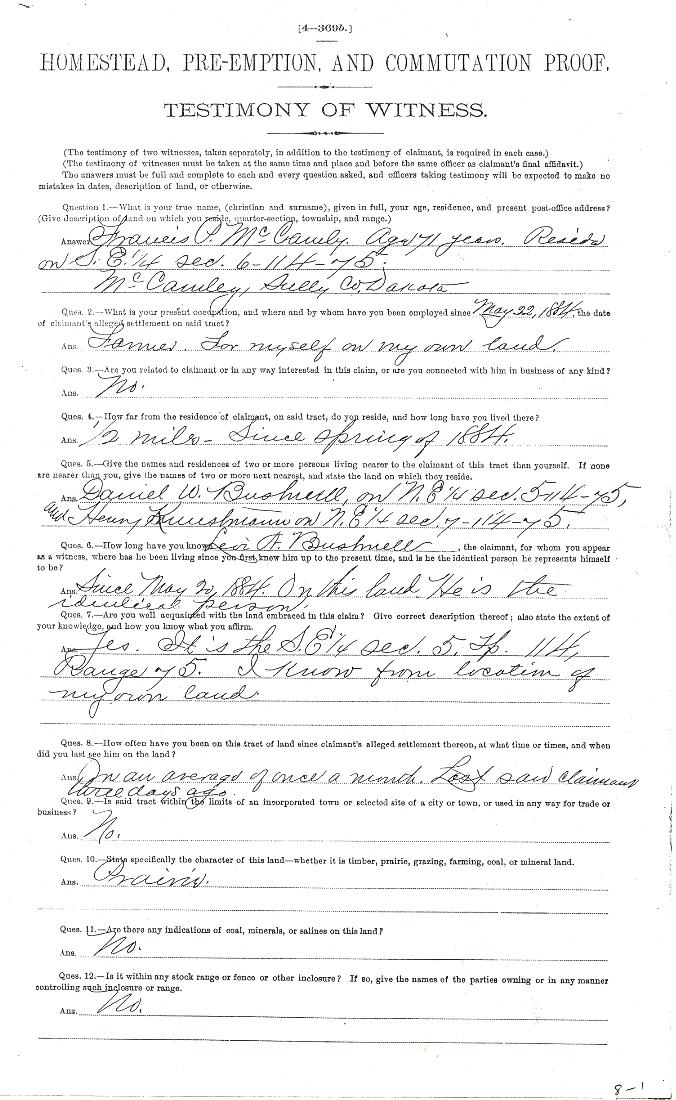 [4—369b.]
HOMESTEAD, PRE-EMPTION, AND COMMUTATION PROOF.
TESTIMONY OF WITNESS.
(The testimony of two witnesses, taken separately, in addition to the testimony of claimant, is required in each case.)
(The testimony of witnesses must be taken at the same time and place and before the same officer as claimant's final affidavit.)
The answers must be full and complete to each and every question asked, and officers taking testimony will be expected to make no
mistakes in dates, description of land, or otherwise.
Question 1.—What is your true name, (christian and surname), given in full, your age, residence, and present post-office address?
(Give description of land on which you reside, quarter-section, township, and range.)
Answer Francis P. McCamly. Aged 71 years. Reside
on S.E. 1/4 sec. 6-114-75.
McCamley, Sully Co. Dakota
Ques. 2.—What is your present occupation, and where and by whom have you been employed since May 22, 1884, the date
of claimant's alleged settlement on said tract?
Ans. Farmer. For myself on my own land.
Ques. 3.—Are you related to claimant or in any way interested in this claim, or are you connected with him in business of any kind?
Ans. No.
Ques. 4.—How far from the residence of claimant, on said tract, do you reside, and how long have you lived there?
Ans. 1/2 miles - Since spring of 1884.
Ques. 5.—Give the names and residences of two or more persons living nearer to the claimant of this tract than yourself. If none
are nearer than you, give the names of two or more next nearest, and state the land on which they reside.
Ans. Daniel W. Bushnell, on N.E 1/4 sec. 5-114-75,
and Henry on N.E 1/4 sec 7-114-75.
Ques. 6.—How long have you known Levi A. Bushnell, the claimant, for whom you appear
as a witness, where has he been living since you first knew him up to the present time, and is he the identical person he represents himself
to be?
Ans. Since May 20, 1884. On this land. He is the
identical person.
Ques. 7.—Are you well acquainted with the land embraced in this claim? Give correct description thereof; also state the extent of
your knowledge, and how you know what you affirm.
Ans. Yes. It is the S.E 1/4 sec. 5, Tp. 114,
Range 75. I know from location of
my own land.
Ques. 8.—How often have you been on this tract of land since claimant's alleged settlement thereon, at what time or times, and when
did you last see him on the land?
Ans. On an average of once a month. Last saw claimant
three days ago.
Ques. 9.—Is said tract within the limits of an incorporated town or selected site of a city or town, or used in any way for trade or
business?
Ans. No.
Ques. 10.—State specifically the character of this land—whether it is timber, prairie, grazing, farming, coal, or mineral land.
Ans. Prairie.
Ques. 11.—Are there any indications of coal, minerals, or salines on this land?
Ans. No.
Ques. 12.—Is it within any stock range or fence or other inclosure? If so, give the names of the parties owning or in any manner
controlling such inclosure or range.
Ans. No.
8-1